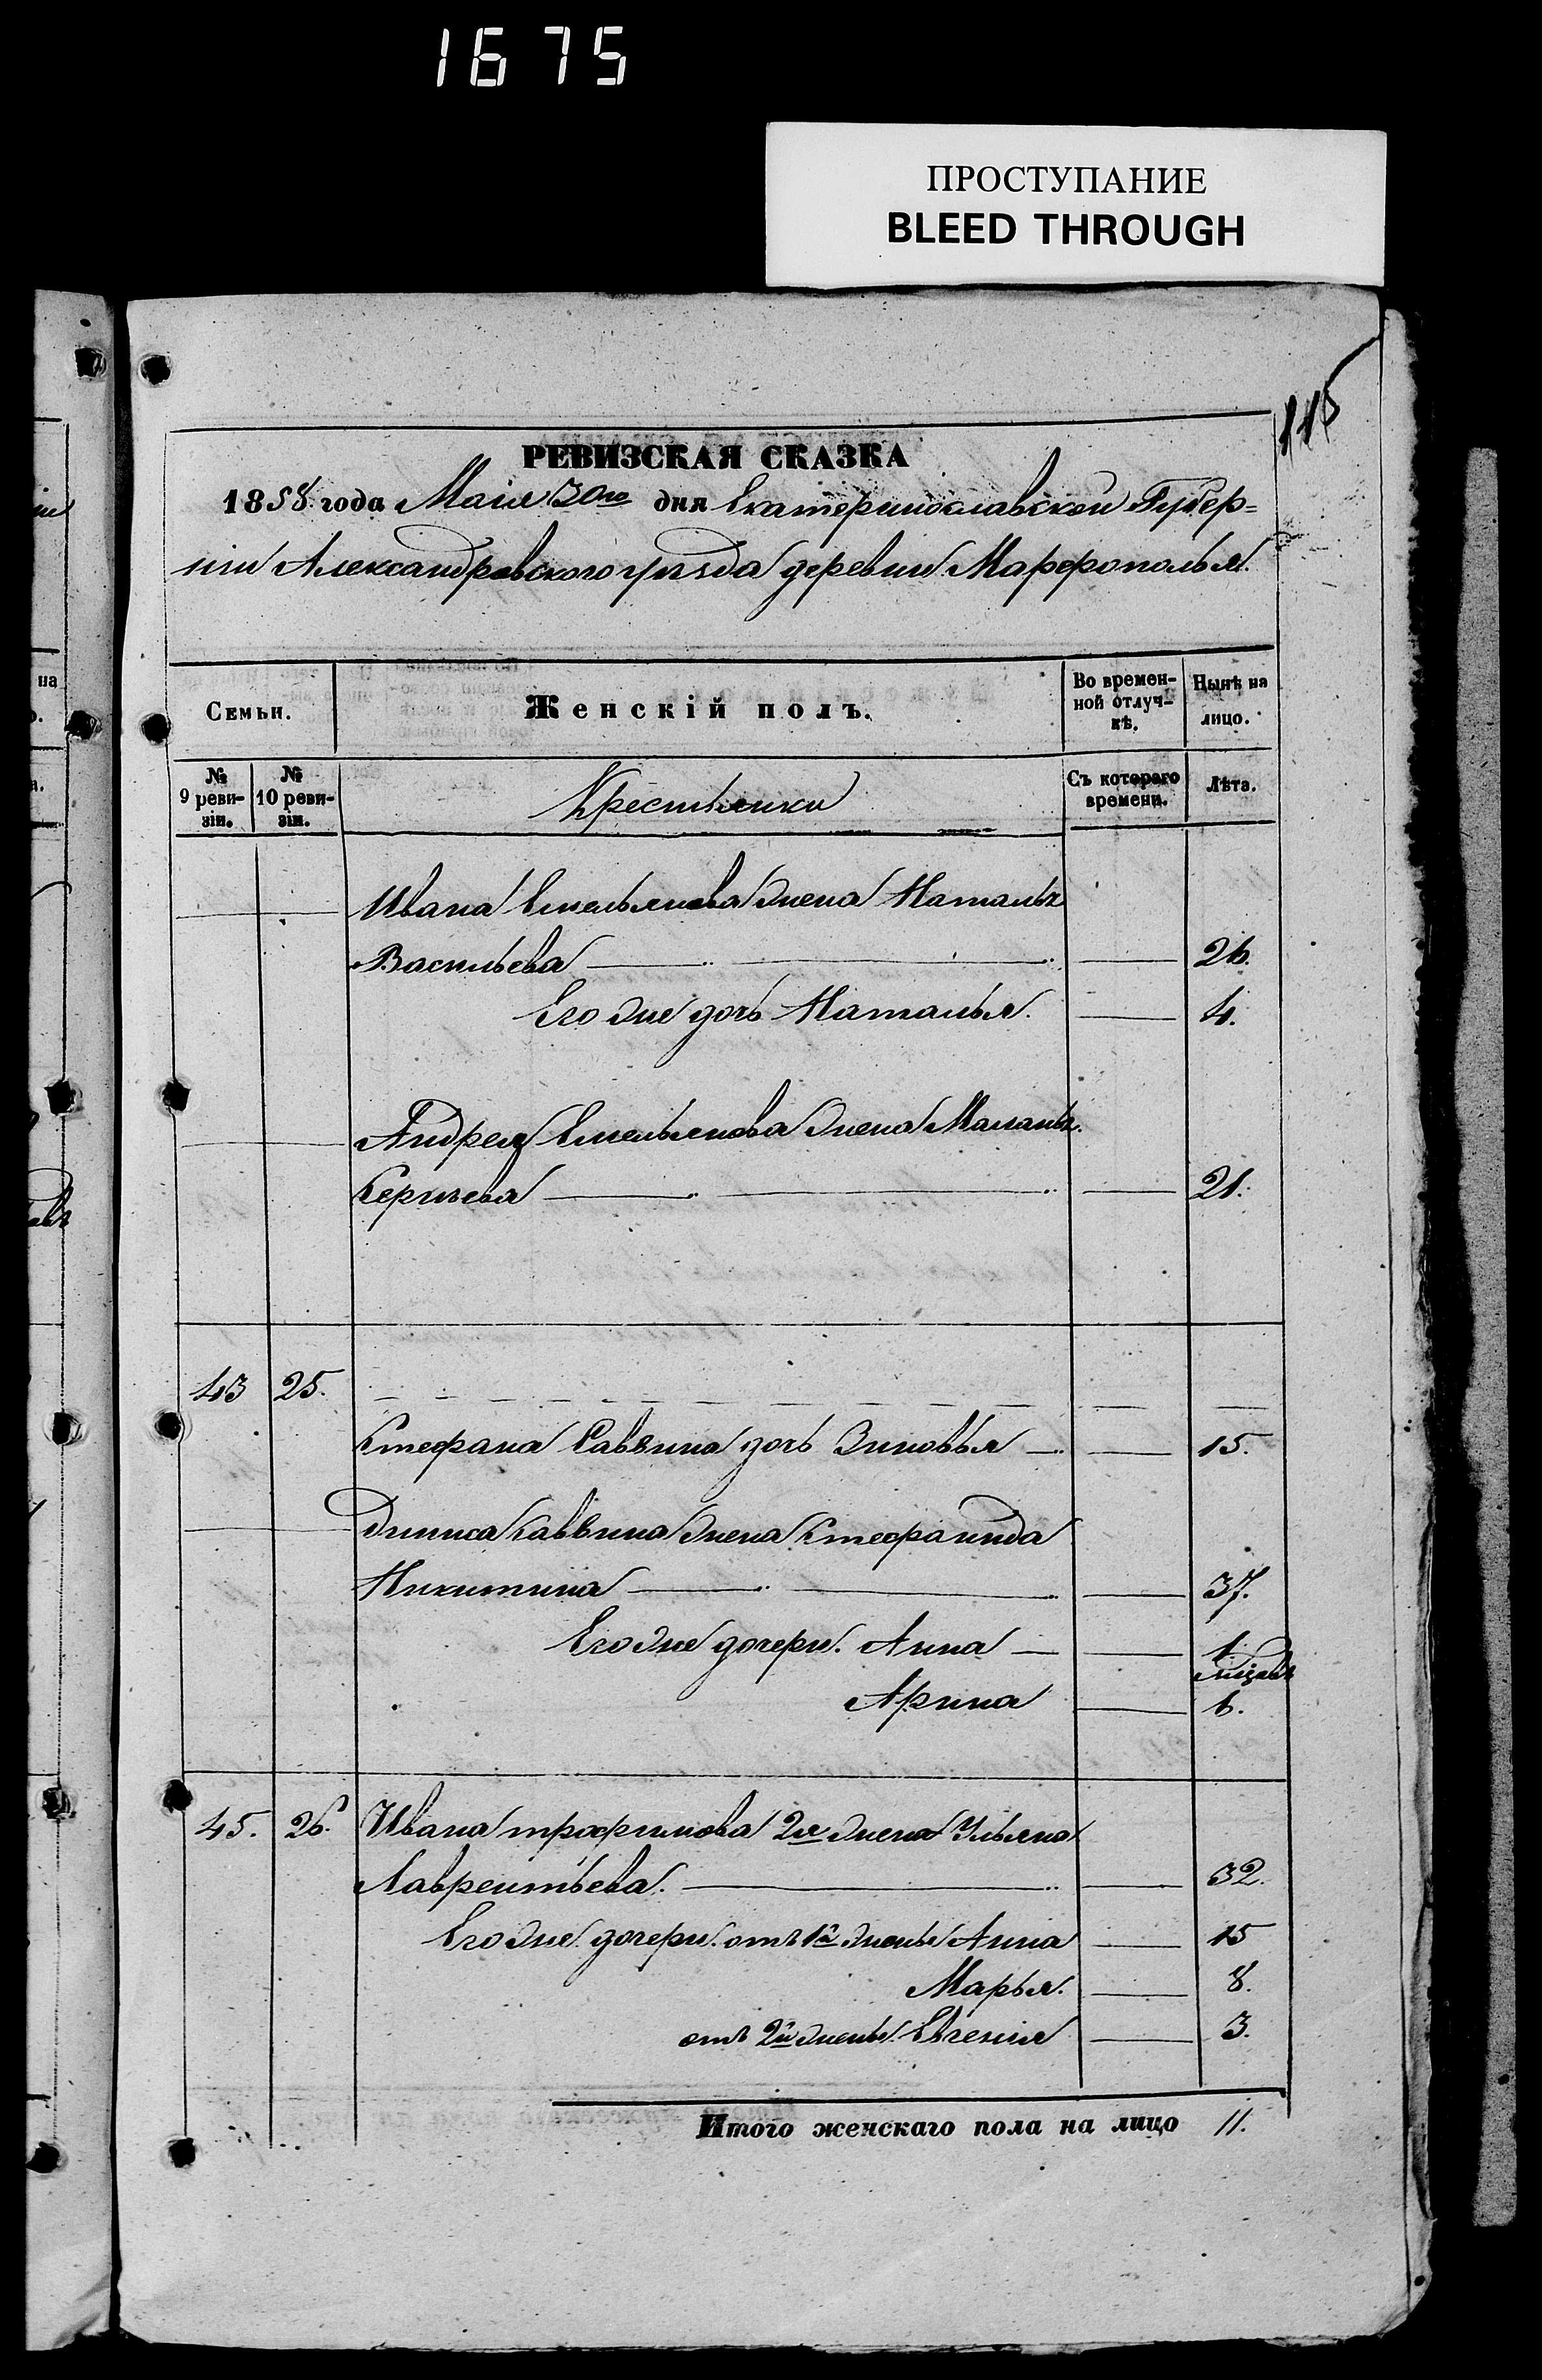 1675
ПРОСТУПАНИЕ
BLEED THROUGH
115
РЕВИЗСКАЯ СКАЗКА
1858 года Маія 30го дня Екатеринославской Губер=
ніи Александровского уѣзда деревни Марфополья.
Семьи.
Женскій полъ.
Во времен-
ной отлуч-
кѣ.
Нынѣ на
лицо.
№
9 реви-
зіи.
№
10 реви-
зіи.
Крестьянки
Съ котораго
времени.
Лѣта.
Ивана Емельянова жена Наталья
Васильева 26.
Его же дочь Наталья. 4.
Андрея Емельянова жена Маланья.
Сергѣева 21.
43 25.
Стефана Саввина дочь Зиновья 15.
Дениса Саввина жена Стефанида
Никитина 37.
Его же дочери. Анна 1
Арина 6.
45. 26. Ивана Трофимова 2я жена Ульяна
Лаврентьева. 32.
Его же дочери. отъ 1й жены Анна 15
Марья. 8.
отъ 2й жены Евгенія 3.
Итого женскаго пола на лицо 11.